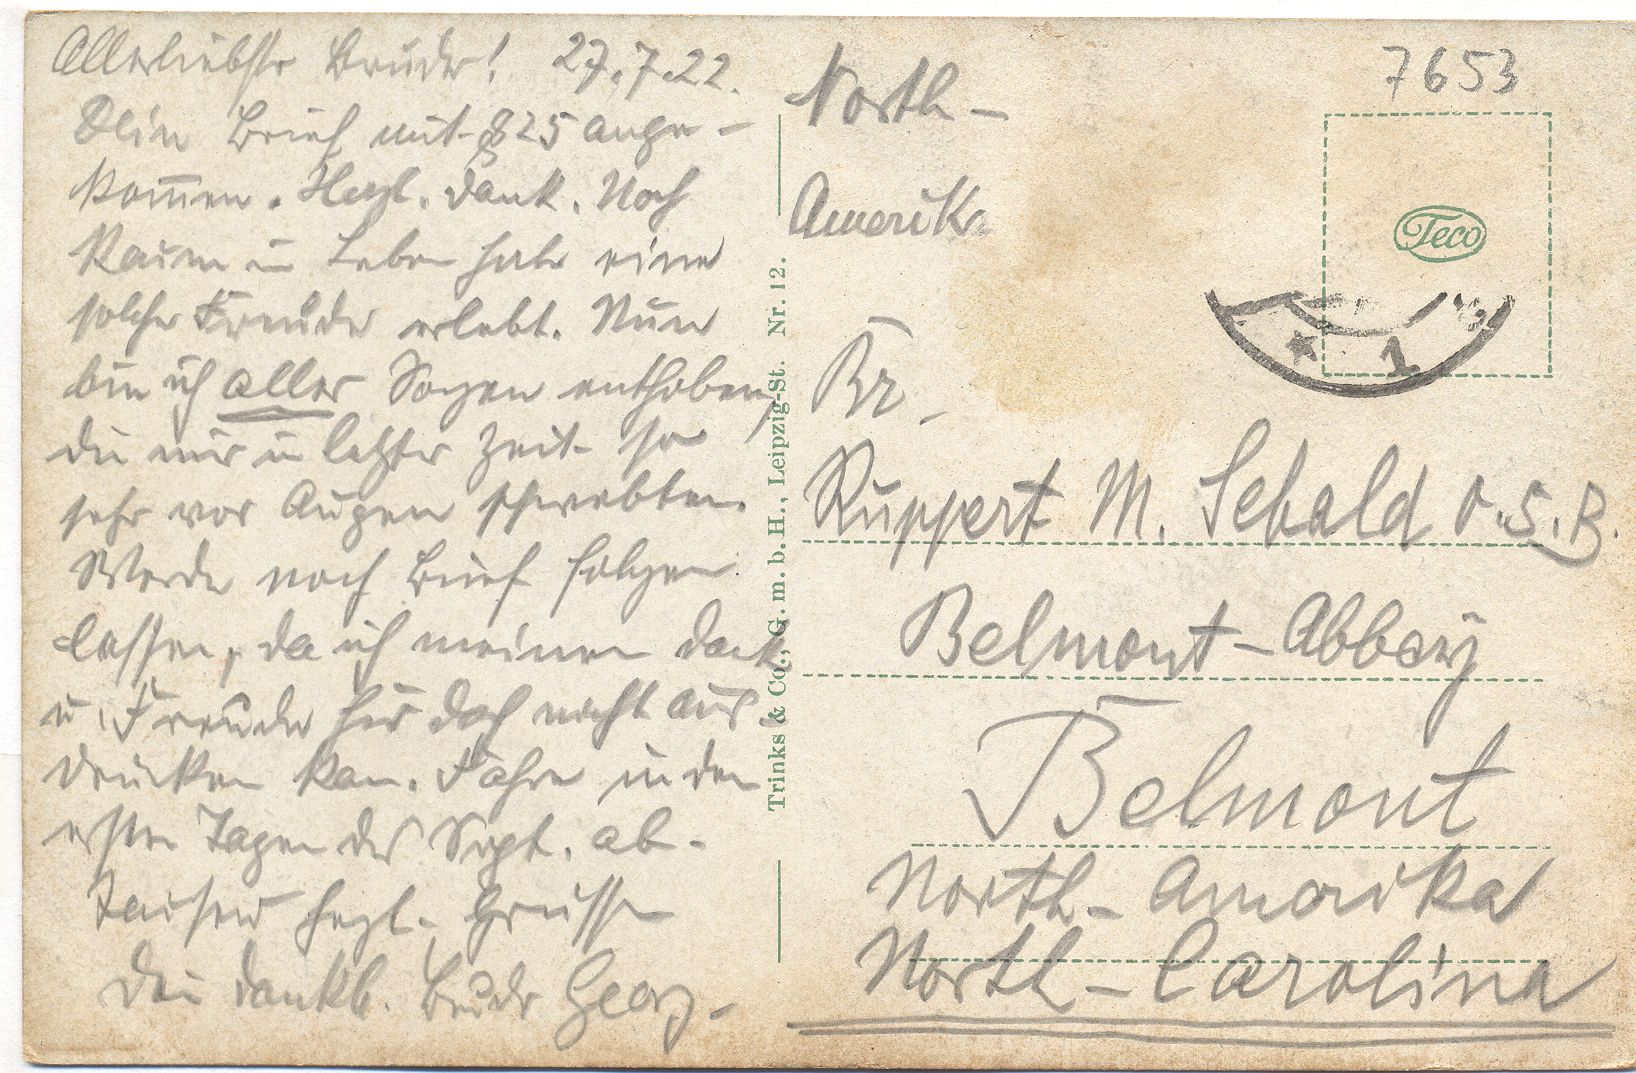 Allerliebster Bruder! 27.7.22.
Dein Brief mit $25 ange-
kom̅en. Herzl. Dank. Noch
kaum im Leben habe eine
solche Freude erlebt. Nun
bin ich aller Sorgen enthoben,
die mir in letzter Zeit so
sehr vor Augen schwebten.
Werde noch Brief folgen
lassen, da ich meinen Dank
u. Freude hier doch nicht aus-
drücken kan. Fahre in den
ersten Tagen des Sept. ab.
Tausend herzl. Grüsse
Dein dankb. Bruder Georg.
North-
Amerika
7653
Teco
1
Br.
Ruppert M. Sebald O.S.B.
Belmont-Abbey
Belmont
North-Amerika
North-Carolina
Trinks & Co., G. m. b. H., Leipzig-St. Nr. 12.